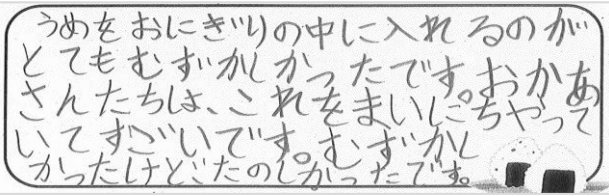 うめをおにぎりの中に入れるのが
とてもむずかしかったです。おかあ
さんたちは、これをまいにちやって
いてすごいです。むずかし
かったけどたのしかったです。